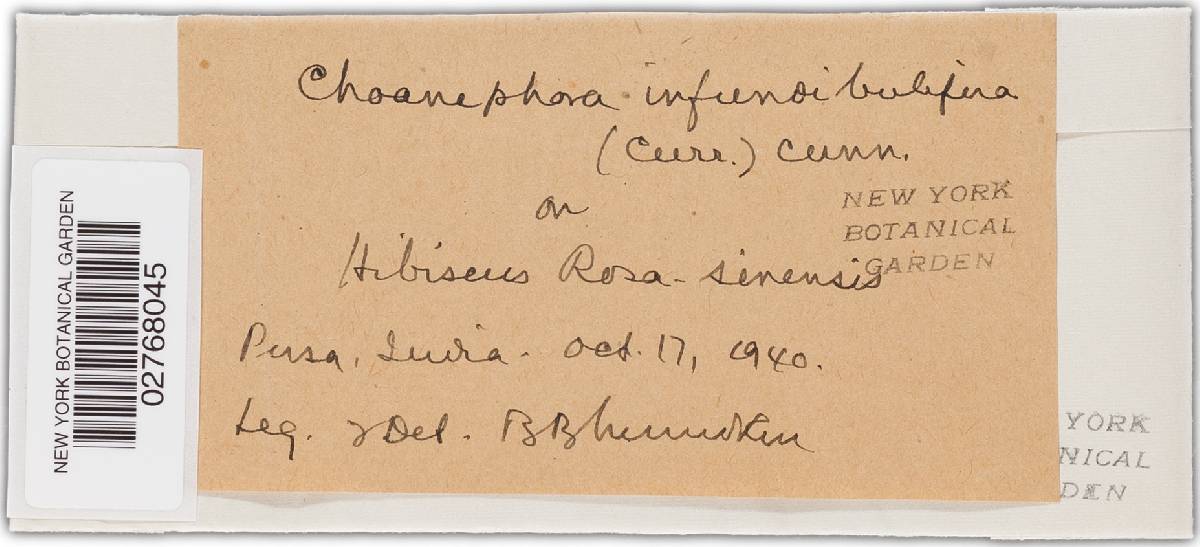 Choanephora infundibulifera
(Curr.) Cunn.
on
Hibiscus Rosa-sinensis
Pusa, India. Oct. 17, 1940.
Leg. & Det.
NEW YORK
BOTANICAL
GARDEN
NEW YORK BOTANICAL GARDEN
02768045
YORK
NICAL
DEN